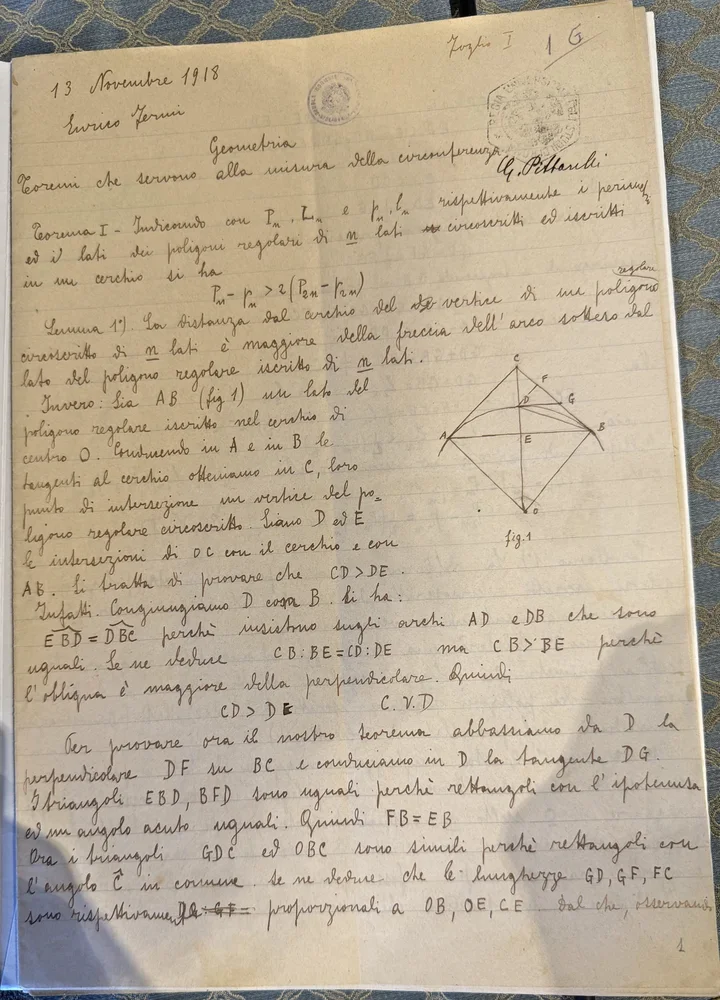 Foglio I
1 G
13 Novembre 1918
Enrico Fermi
REGIA UNIVERSITÀ
Geometria
G. Pittarelli
Teoremi che servono alla misura della circonferenza
Teorema I - Indicando con Pn, Ln e pn, ln rispettivamente i perimetri
ed i lati dei poligoni regolari di n lati circoscritti ed iscritti
in un cerchio si ha
Pn - pn > 2 (P2n - p2n)
Lemma 1°) La distanza dal cerchio del vertice di un poligono regolare
circoscritto di n lati è maggiore della freccia dell'arco sotteso dal
lato del poligono regolare iscritto di n lati.
Invero: Sia AB (fig 1) un lato del
poligono regolare iscritto nel cerchio di
centro O. Conducendo in A e in B le
tangenti al cerchio otteniamo in C, loro
punto di intersezione un vertice del po=
ligono regolare circoscritto. Siano D ed E
le intersezioni di OC con il cerchio e con
AB. Si tratta di provare che CD > DE.
Infatti. Congiungiamo D con B. Si ha:
EBD = DBC perchè insistono sugli archi AD e DB che sono
uguali. Se ne deduce CB : BE = CD : DE ma CB > BE perchè
l'obliqua è maggiore della perpendicolare. Quindi
CD > DE C.V.D
Per provare ora il nostro teorema abbassiamo da D la
perpendicolare DF su BC e conduciamo in D la tangente DG.
I triangoli EBD, BFD sono uguali perchè rettangoli con l'ipotenusa
ed un angolo acuto uguali. Quindi FB = EB
Ora i triangoli GDC ed OBC sono simili perchè rettangoli con
l'angolo Ĉ in comune. Se ne deduce che le lunghezze GD, GF, FC
sono rispettivamente proporzionali a OB, OE, CE. Dal che, osservando
C
F
D
G
A
E
B
O
fig. 1
1